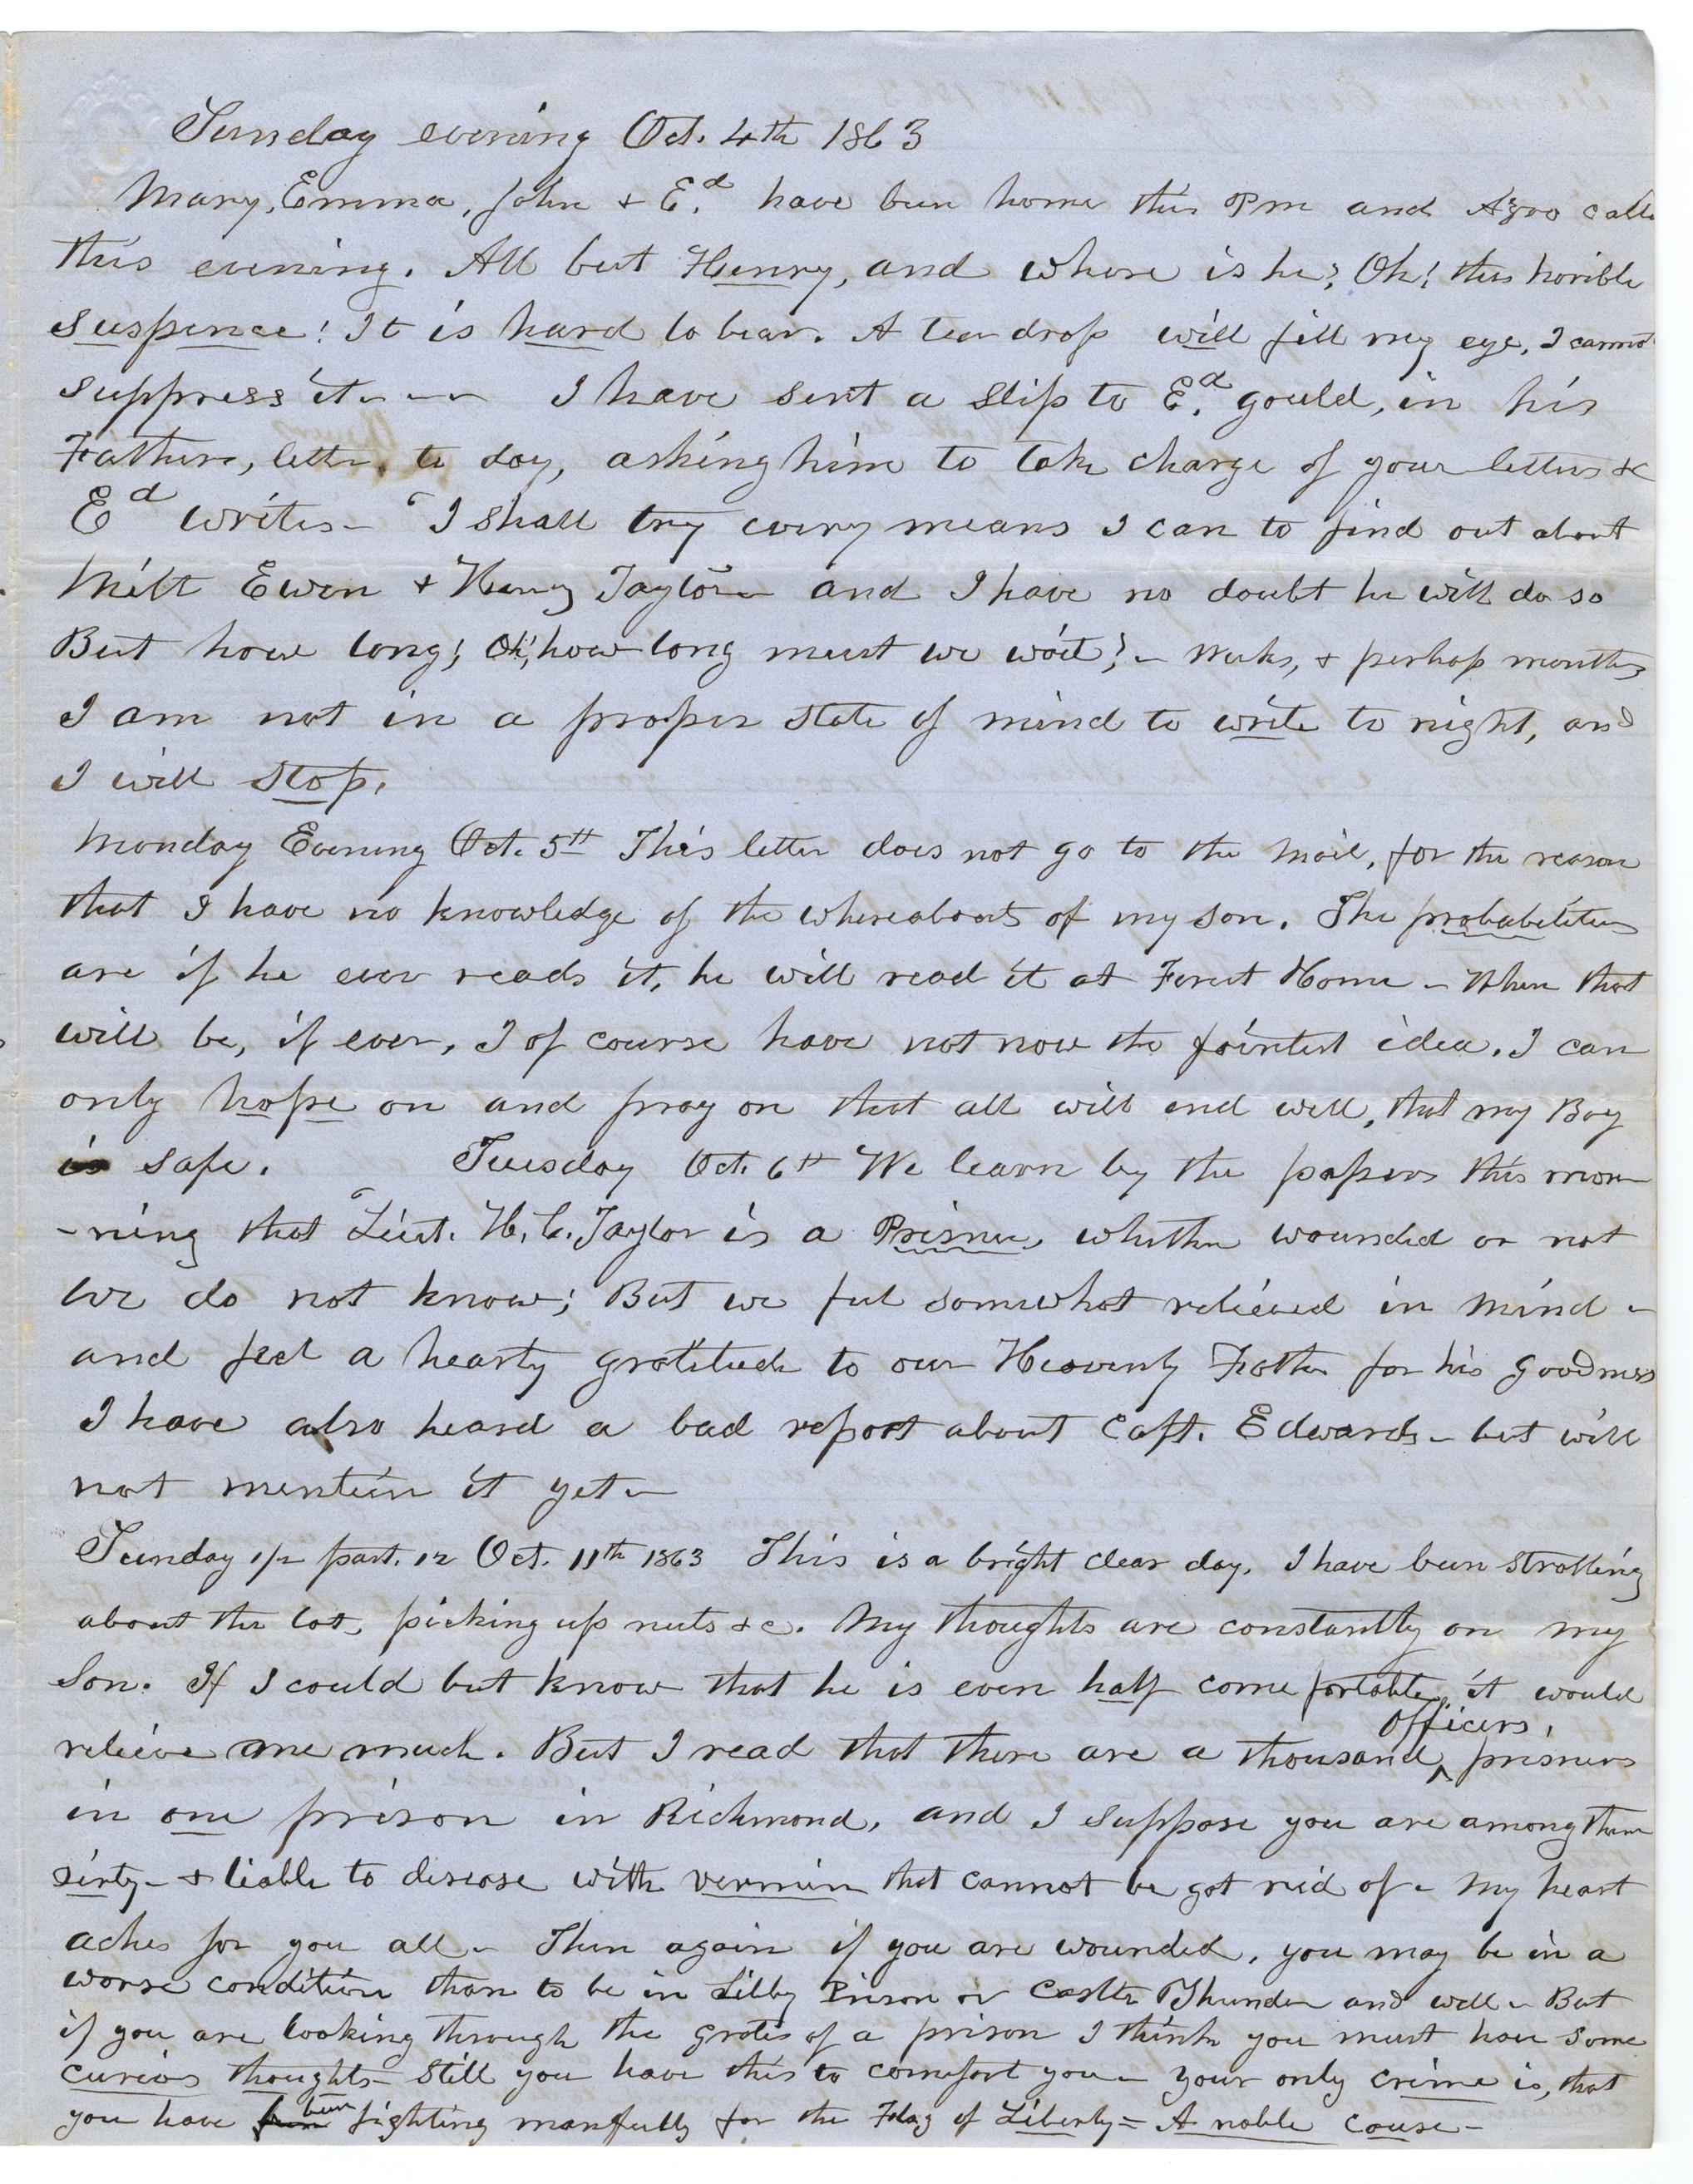 Sunday evening Oct. 4th 1863
Mary, Emma, John & Ed. have been home this Pm and Azro calls
this evening. All but Henry, and where is he? Oh! this horible
suspence! It is hard to bear. A tear drop will fill my eye, I cannot
suppress it - - - I have sent a slip to Ed. gould, in his
Fathers, letter, to day, asking him to take charge of your letters &c
Ed writes - "I shall try every means I can to find out about
Milt Ewen & Henry Taylor" and I have no doubt he will do so
But how long; Oh! how long must we wait? - Weeks, & perhap months
I am not in a proper state of mind to write to night, and
I will stop.
Monday Evening Oct. 5th This letter does not go to the mail, for the reason
that I have no knowledge of the whereabouts of my son. The probabilities
are if he ever reads it, he will read it at Forest Home - When that
will be, if ever, I of course have not now the faintest idea. I can
only hope on and pray on that all will end well, that my Boy
is safe. Tuesday Oct. 6th We learn by the papers this mor-
-ning that "Lieut. H. C. Taylor is a Prisner, whether wounded or not
we do not know; But we feel somewhat relieved in mind -
and feel a hearty gratitude to our Heavenly Father for his goodness
I have also heard a bad report about Capt. Edwards - but will
not mention it yet -
Sunday 1/2 past. 12 Oct. 11th 1863 This is a bright clear day. I have been strolling
about the lot, picking up nuts &c. My thoughts are constantly on my
Son. If I could but know that he is even half come fortable, it would
relieve me much. But I read that there are a thousand ^ officers, prisners
in one prison in Richmond, and I suppose you are among them
dirty - & liable to disease with vermin that cannot be got rid of - My heart
aches for you all - Then again if you are wounded, you may be in a
worse condition than to be in Libby Prison or Castle Thunder and well - But
if you are looking through the grates of a prison I think you must have some
curious thoughts - Still you have this to comfort you - your only crime is, that
you have been fighting manfully for the Flag of Liberty = A noble cause -